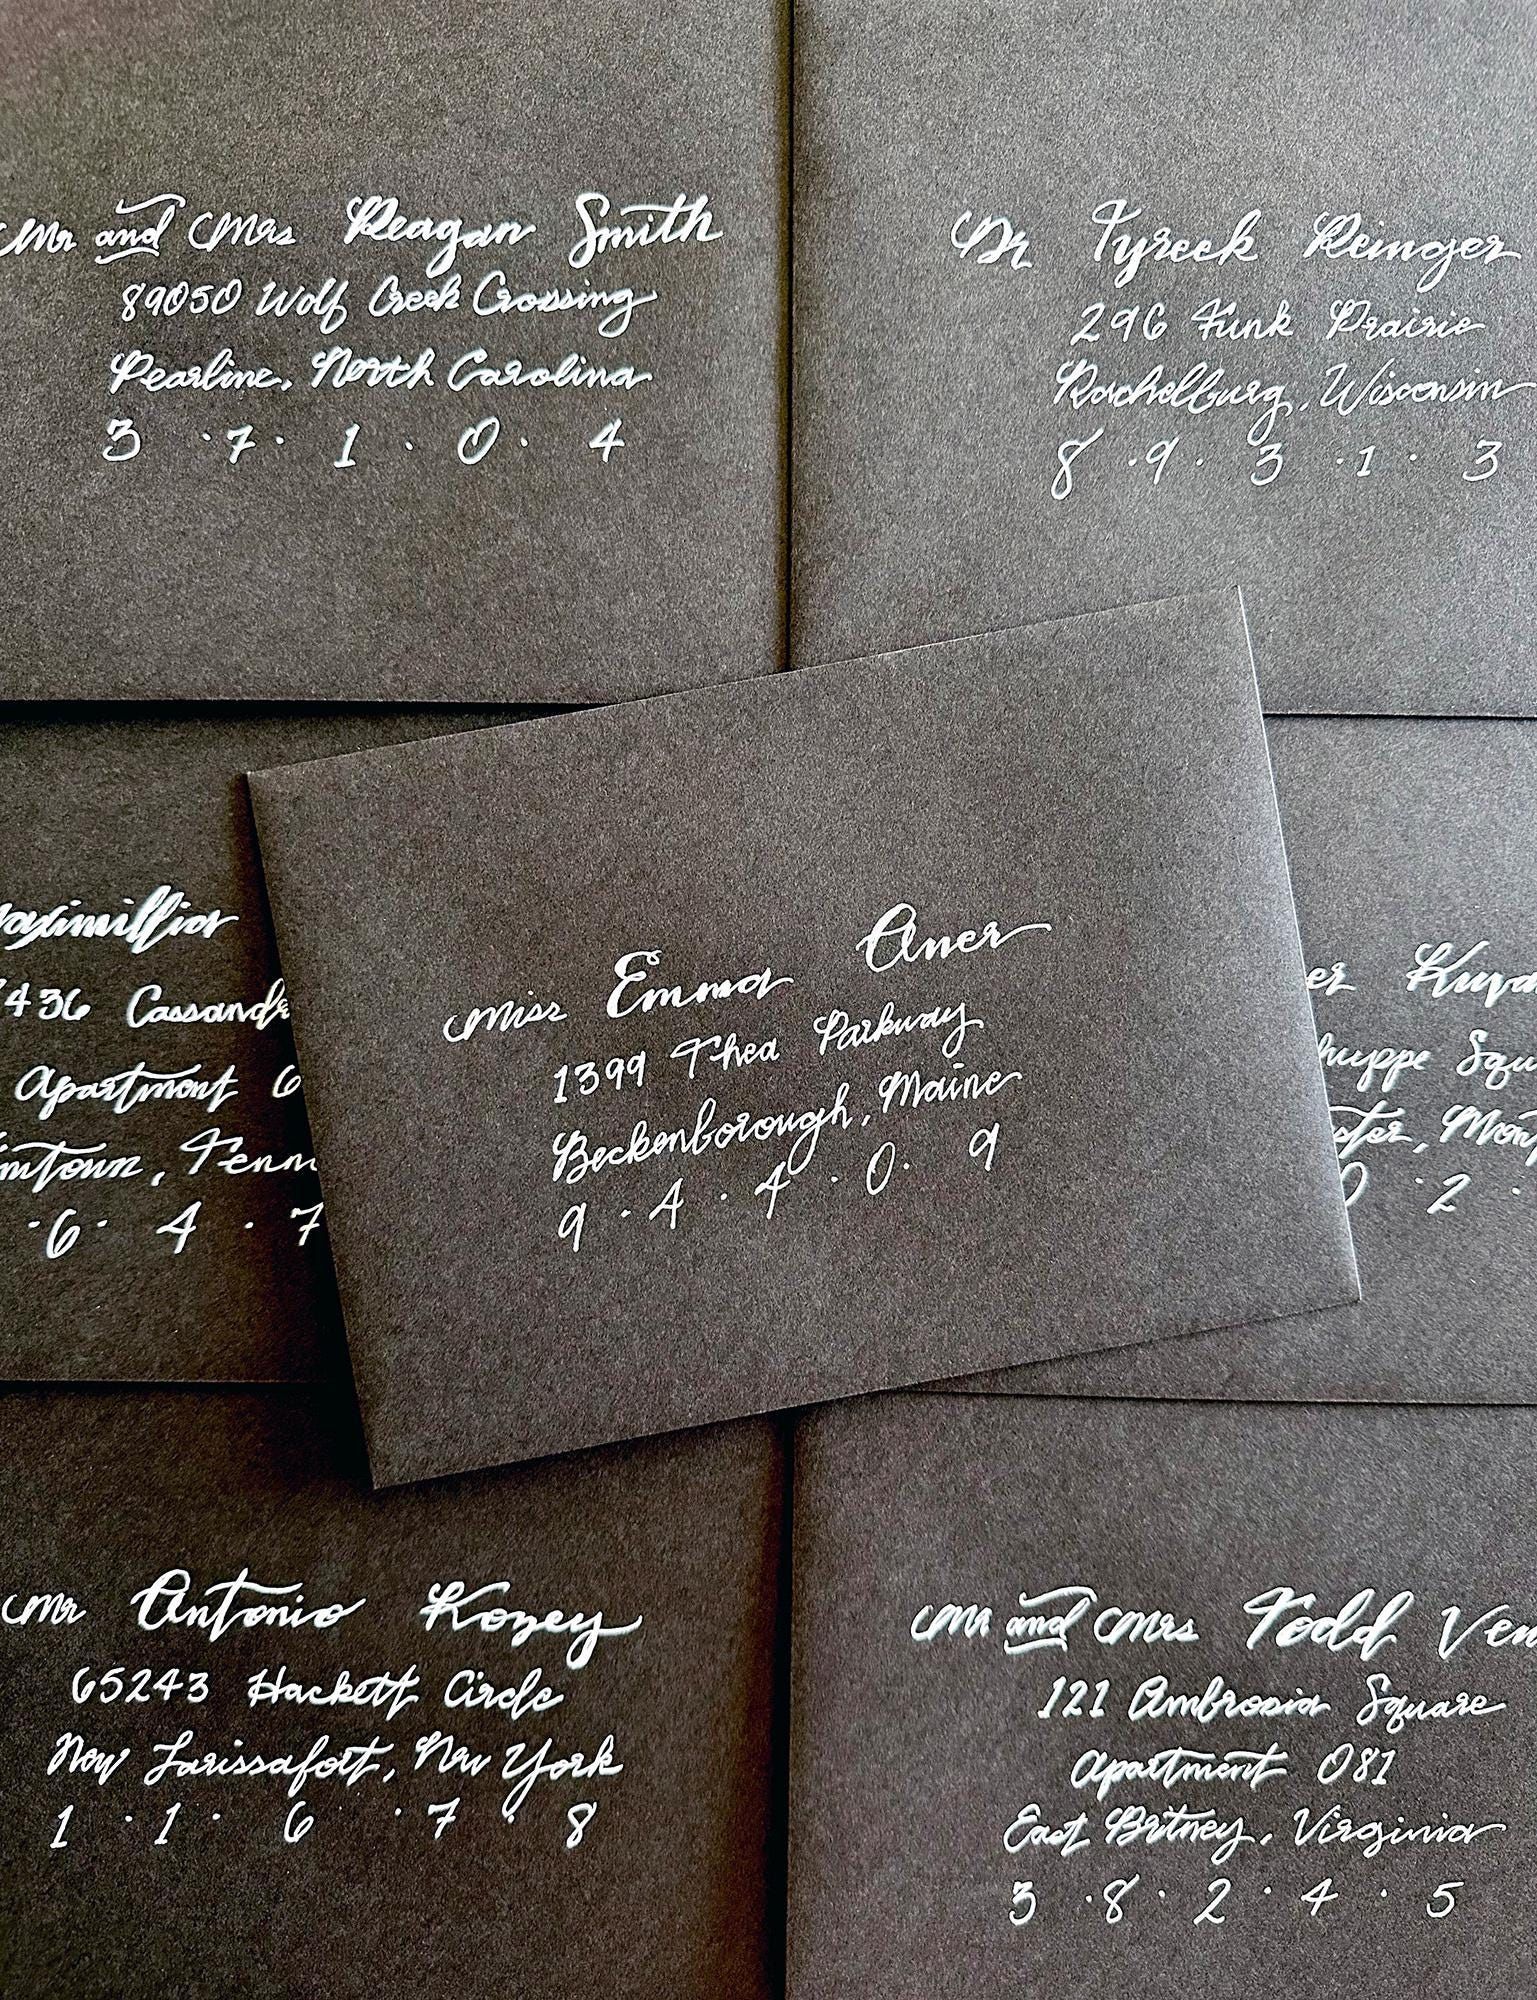 Mr and Mrs Reagan Smith
89050 Wolf Creek Crossing
Pearline, North Carolina
3 · 7 · 1 · 0 · 4
Dr Tyreek Reinger
296 Funk Prairie
Rachelburg, Wisconsin
8 · 9 · 3 · 1 · 3
aximillian
436 Cassand
Apartment 6
mtown, Tenn
· 6 · 4 · 7
Miss Emma Aner
1399 Thea Parkway
Beckenborough, Maine
9 · 4 · 4 · 0 · 9
er
uppe Squ
ster, Mon
0 · 2 ·
Mr Antonio Kozey
65243 Hackett Circle
New Larissafort, New York
1 · 1 · 6 · 7 · 8
Mr and Mrs Todd Ven
121 Ambrosia Square
Apartment 081
East Britney, Virginia
3 · 8 · 2 · 4 · 5